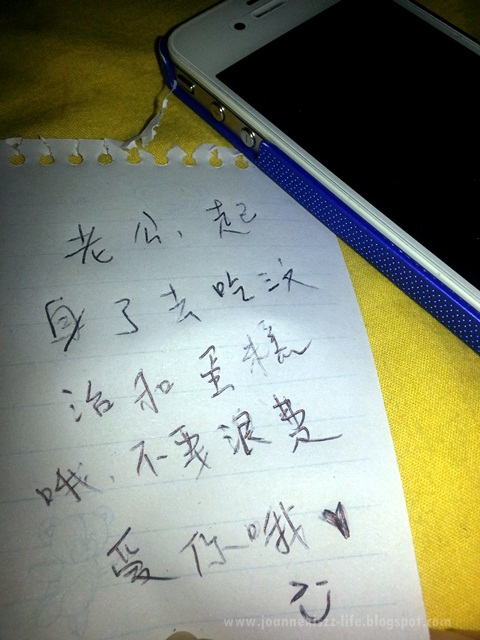 老公、起
身了去吃三文
治和蛋糕
哦、不要浪费
爱你哦♥
www.joanneniszz-life.blogspot.com